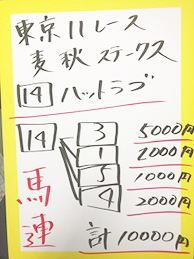 東京11レース
麦秋ステークス
14 ハットラブ
14 3 5000円
1 2000円
5 1000円
4 2000円
馬連
計10000円